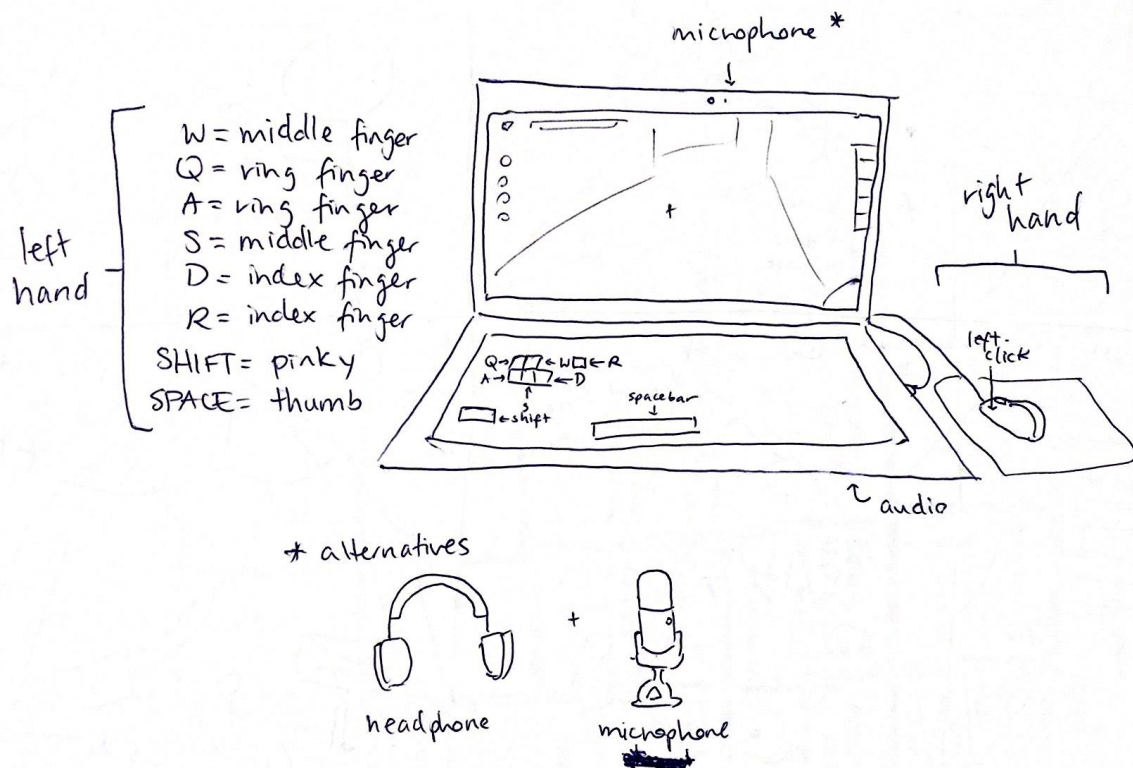 microphone *
left
hand
W = middle finger
Q = ring finger
A = ring finger
S = middle finger
D = index finger
R = index finger
SHIFT = pinky
SPACE = thumb
right
hand
left-
click
Q→ ←W ←R
A→ ←D
S
←shift
spacebar
audio
* alternatives
+
headphone
microphone